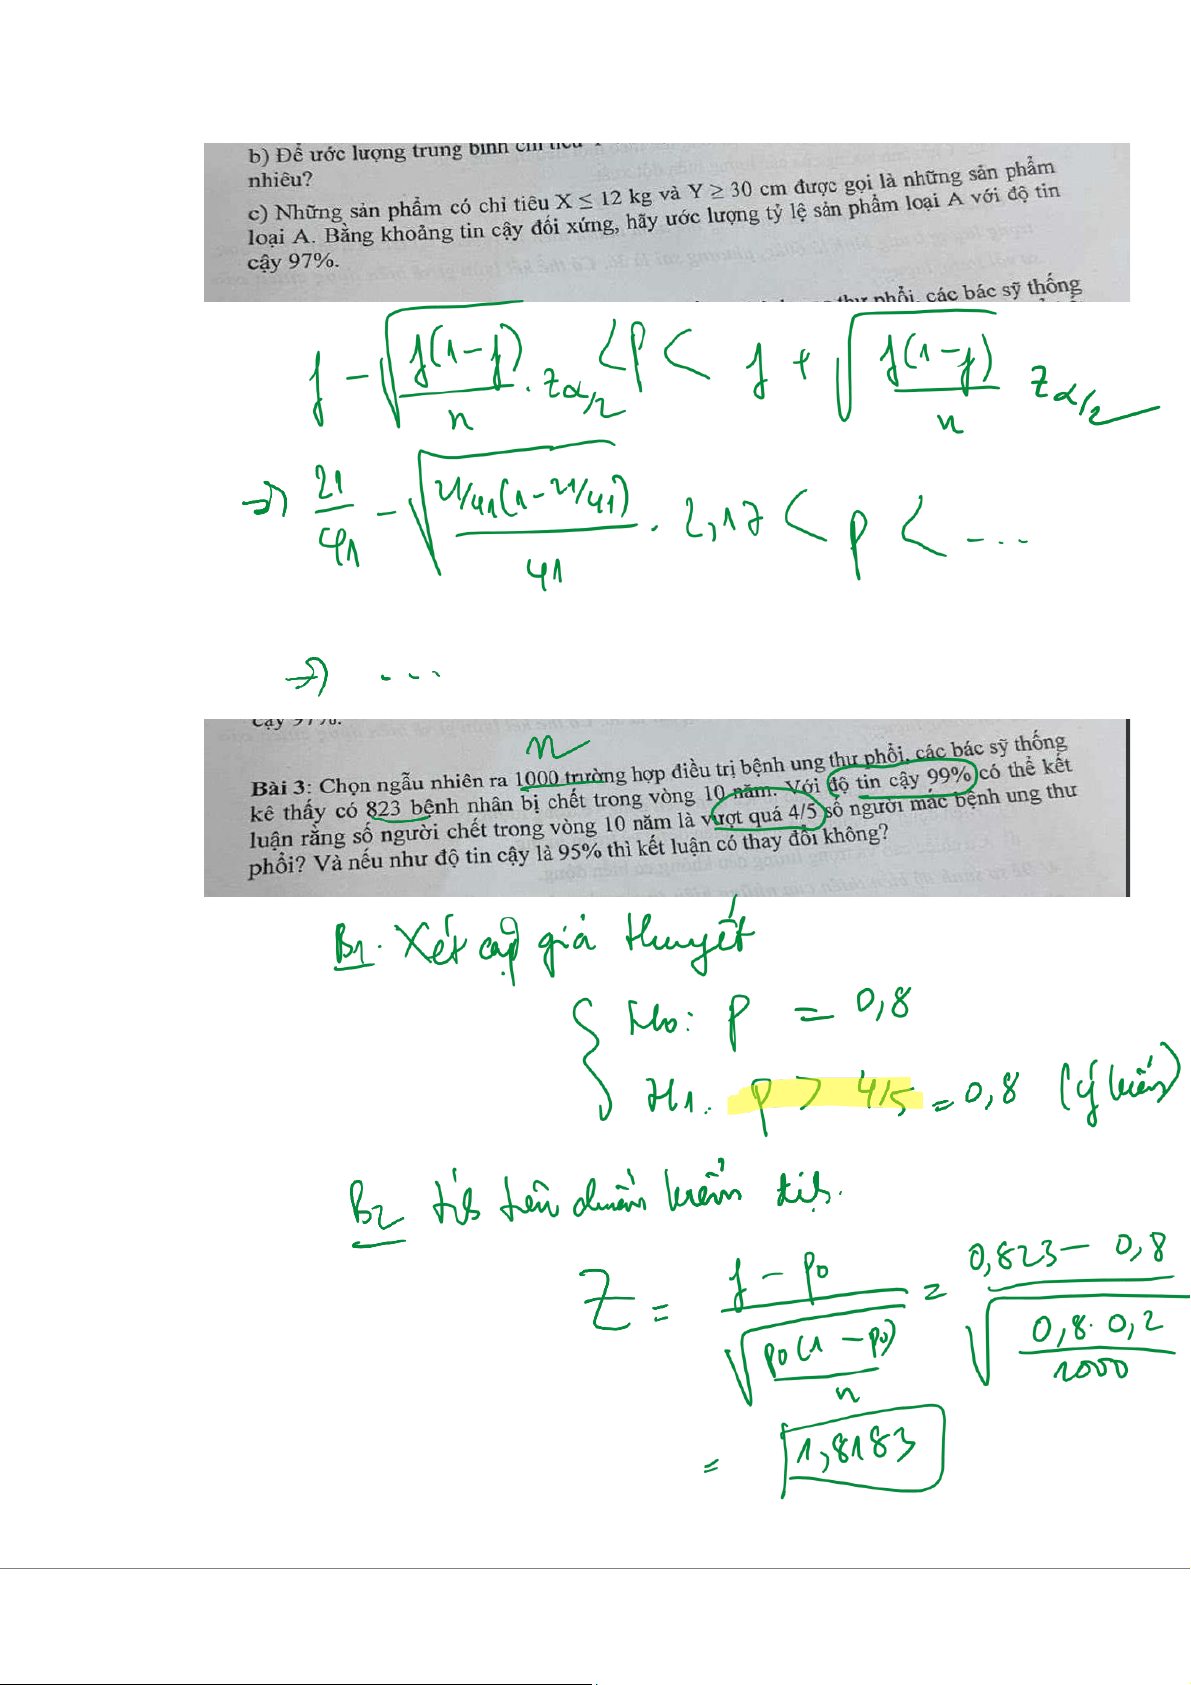 b) Để ước lượng trung bình chỉ tiêu
nhiêu?
c) Những sản phẩm có chỉ tiêu X ≤ 12 kg và Y ≥ 30 cm được gọi là những sản phẩm
loại A. Bằng khoảng tin cậy đối xứng, hãy ước lượng tỷ lệ sản phẩm loại A với độ tin
cậy 97%.
thư phổi, các bác sỹ thống
f - √(f(1-f)/n) . z_{α/2} < p < f + √(f(1-f)/n) z_{α/2}
=> 21/41 - √(21/41(1-21/41)/41) . 2,17 < p < ...
=> ...
cậy 97%.
n
Bài 3: Chọn ngẫu nhiên ra 1000 trường hợp điều trị bệnh ung thư phổi, các bác sỹ thống
kê thấy có 823 bệnh nhân bị chết trong vòng 10 năm. Với độ tin cậy 99% có thể kết
luận rằng số người chết trong vòng 10 năm là vượt quá 4/5 số người mắc bệnh ung thư
phổi? Và nếu như độ tin cậy là 95% thì kết luận có thay đổi không?
B1. Xét cặp giả thuyết
{ H0: p = 0,8
H1: p > 4/5 = 0,8 (ý kiến)
B2 tính tiêu chuẩn kiểm định.
Z = (f - p0)/√(p0(1-p0)/n) = (0,823 - 0,8)/√(0,8.0,2/1000)
= 1,8183